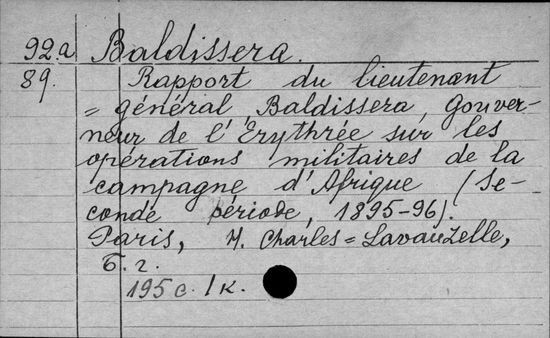 92.a Baldissera.
89. Rapport du lieutenant
= général Baldissera, Gouver-
neur de l'Erythrée sur les
opérations militaires de la
campagne d'Afrique (Se-
conde période, 1895-96).
Paris, H. Charles=Lavauzelle,
Б. г.
195 с. 1 к.